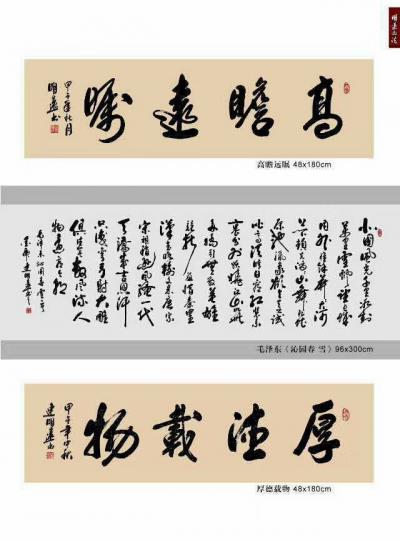 高瞻遠矚
甲午年秋月
高瞻远瞩 48x180cm
北国风光千里冰封
万里雪飘望长城
内外惟余莽莽大河
上下顿失滔滔山舞银蛇
原驰蜡象欲与天公试
比高须晴日看红装素
裹分外妖娆江山如此
多娇引无数英雄
竞折腰惜秦皇
汉武略输文采唐宗
宋祖稍逊风骚一代
天骄成吉思汗
只识弯弓射大雕
俱往矣数风流人
物还看今朝
毛泽东《沁园春 雪》96x300cm
厚德載物
甲午年仲秋
厚德载物 48x180cm